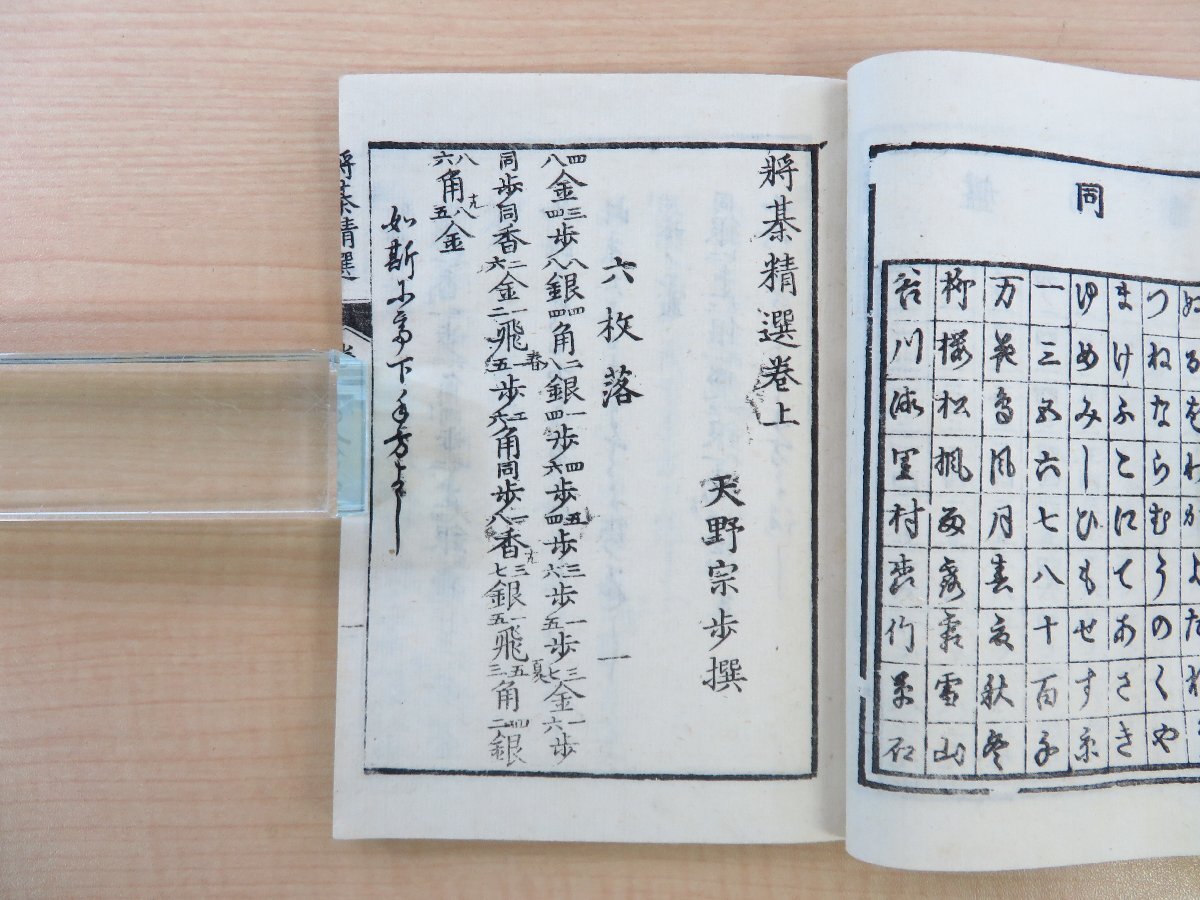 同
ぬるをわかよたれ
つねならむうのくや
まけふこにてあさき
ゆめみしひもせす京
一三五六七八十百千
万英鳥風月春夏秋冬
柳桜松楓雨露霜雪山
谷川海里村竹草石
將棊精選巻上
天野宗歩撰
六枚落 一
四八金三四歩八八銀四四角二八銀一四歩四六歩五四歩三六歩一五歩三七金一六歩
同歩同香二六金一二飛五歩六角同歩一八香三七銀一五飛五三角四二銀
八六角八五金
如斯而下手方よし
將棊精選